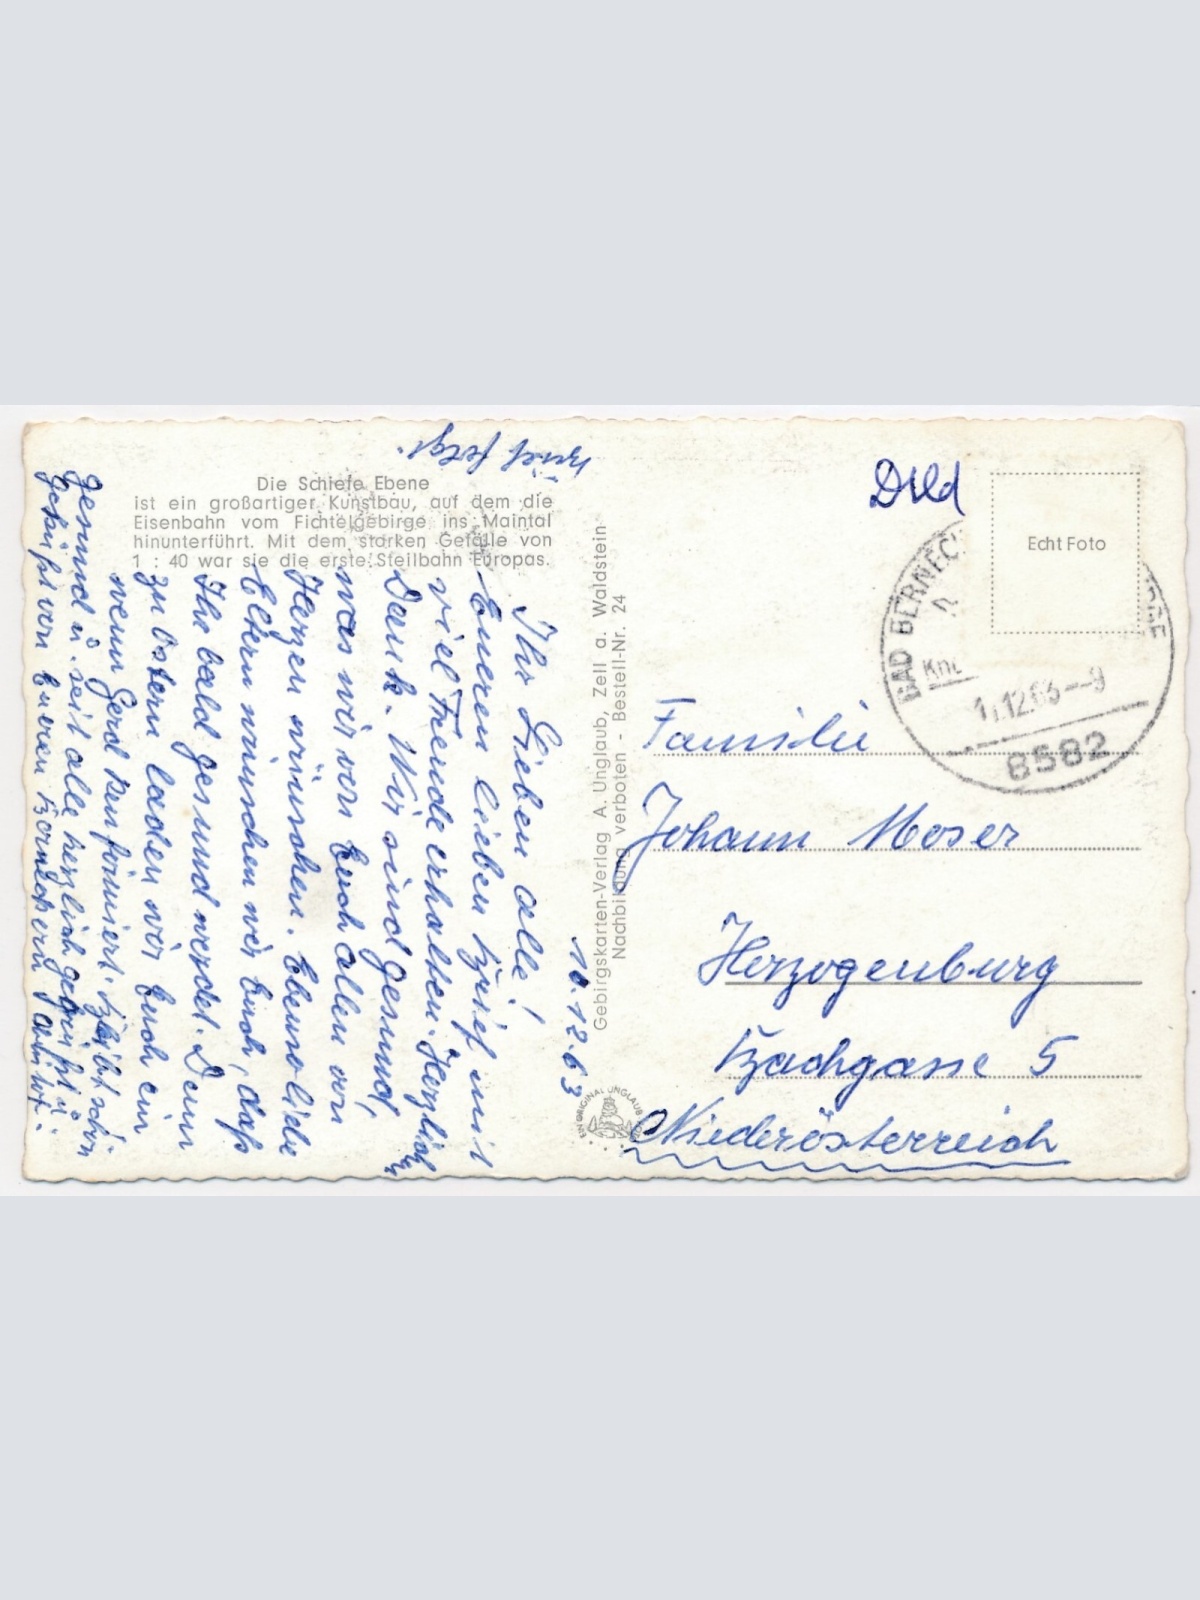 Die Schiefe Ebene
ist ein großartiger Kunstbau, auf dem die
Eisenbahn vom Fichtelgebirge ins Maintal
hinunterführt. Mit dem starken Gefälle von
1 : 40 war sie die erste Steilbahn Europas.
10.12.63
Ihr Lieben alle!
Eueren lieben Brief mit
viel Freude erhalten. Herzlich
Dank. Wir sind gesund,
was wir von Euch allen von
Herzen wünschen. Ebenso liebe
Eltern wünschen wir Euch, daß
Ihr bald gesund werdet. Denn
zu Ostern laden wir Euch ein
wenn Gerd konfirmiert. Bleibt schön
gesund u. seit alle herzlich gegrüßt u.
geküßt von Eueren
Brief folgt.
Gebirgskarten-Verlag A. Unglaub, Zell a. Waldstein
Nachbildung verboten - Bestell-Nr. 24
EIN ORIGINAL UNGLAUB
Echt Foto
BAD BERNECK
12.63--9
8582
Familie
Johann Moser
Herzogenburg
Bachgasse 5
Niederösterreich